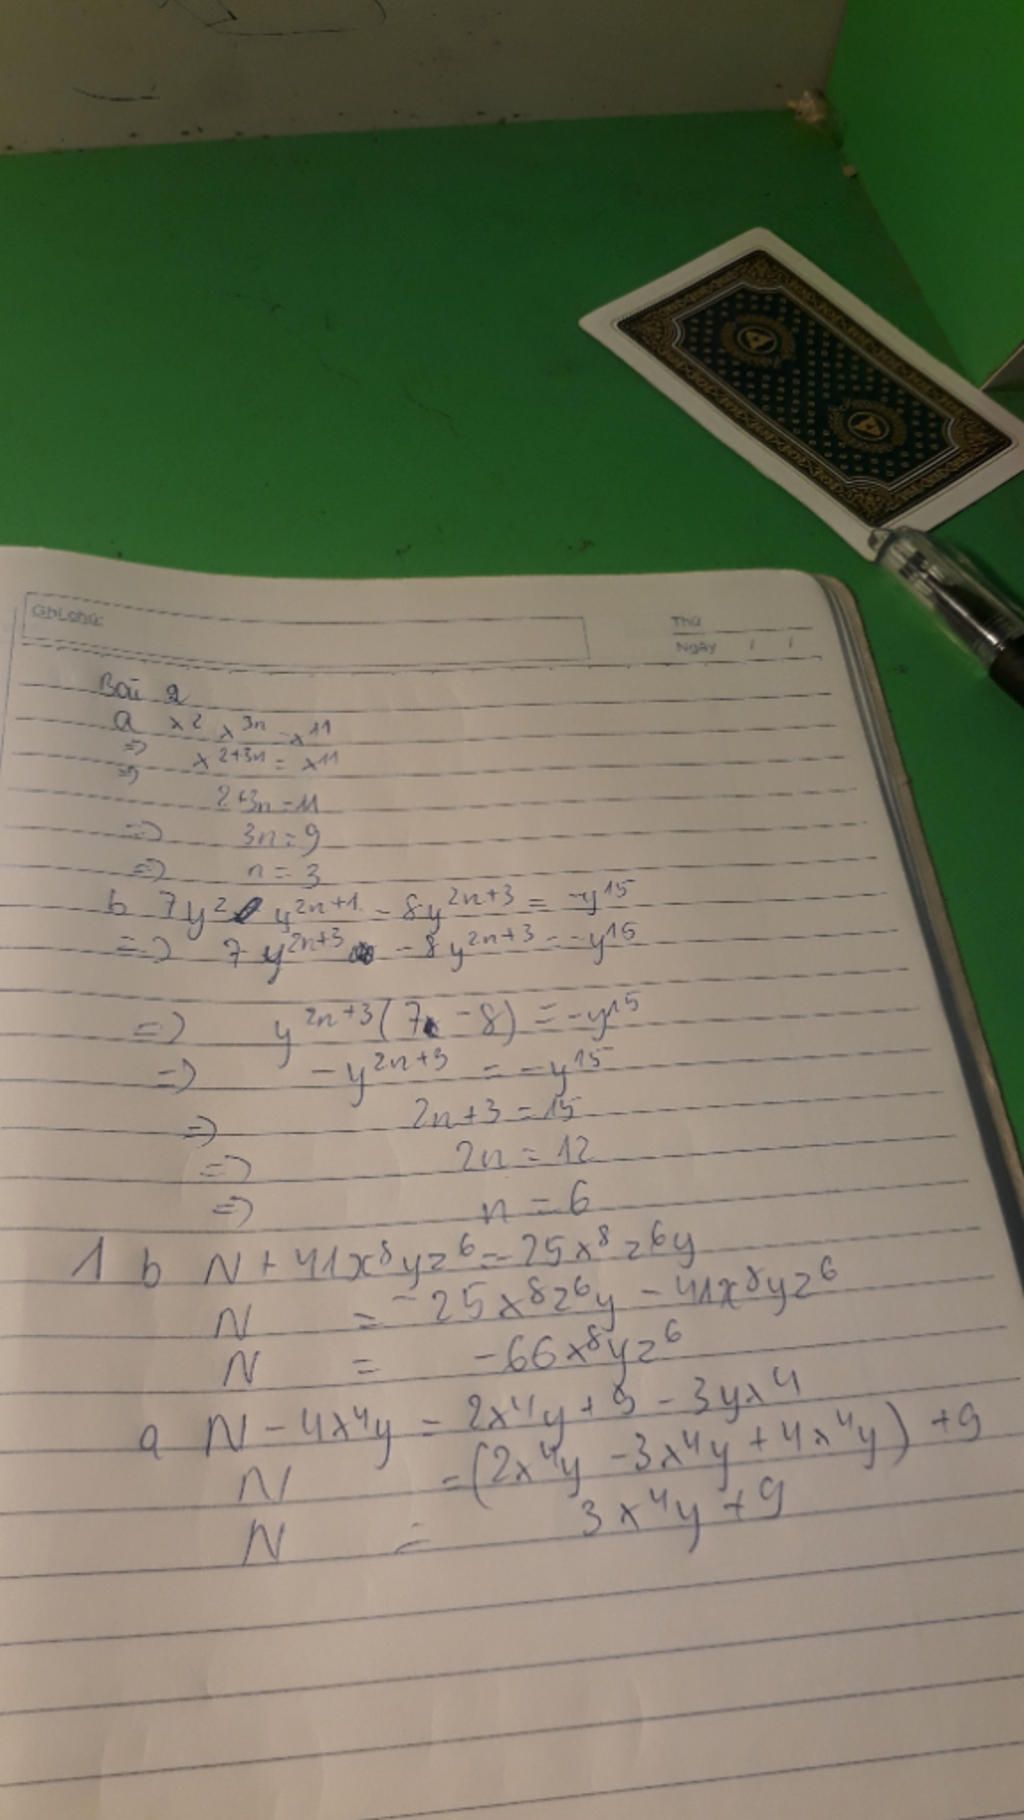 Ghi chú:
Thứ
Ngày / /
Bài 2
a x² x³ⁿ = x¹¹
=> x²⁺³ⁿ = x¹¹
=> 2+3n = 11
=> 3n = 9
=> n = 3
b 7y² y²ⁿ⁺¹ - 8y²ⁿ⁺³ = -y¹⁵
=> 7 y²ⁿ⁺³ - 8y²ⁿ⁺³ = -y¹⁵
=> y²ⁿ⁺³(7 - 8) = -y¹⁵
=> -y²ⁿ⁺³ = -y¹⁵
=> 2n+3 = 15
=> 2n = 12
=> n = 6
1 b N + 41x⁸yz⁶ = -25x⁸z⁶y
N = -25x⁸z⁶y - 41x⁸yz⁶
N = -66x⁸yz⁶
a N - 4x⁴y = 2x⁴y + 9 - 3yx⁴
N = (2x⁴y - 3x⁴y + 4x⁴y) + 9
N = 3x⁴y + 9